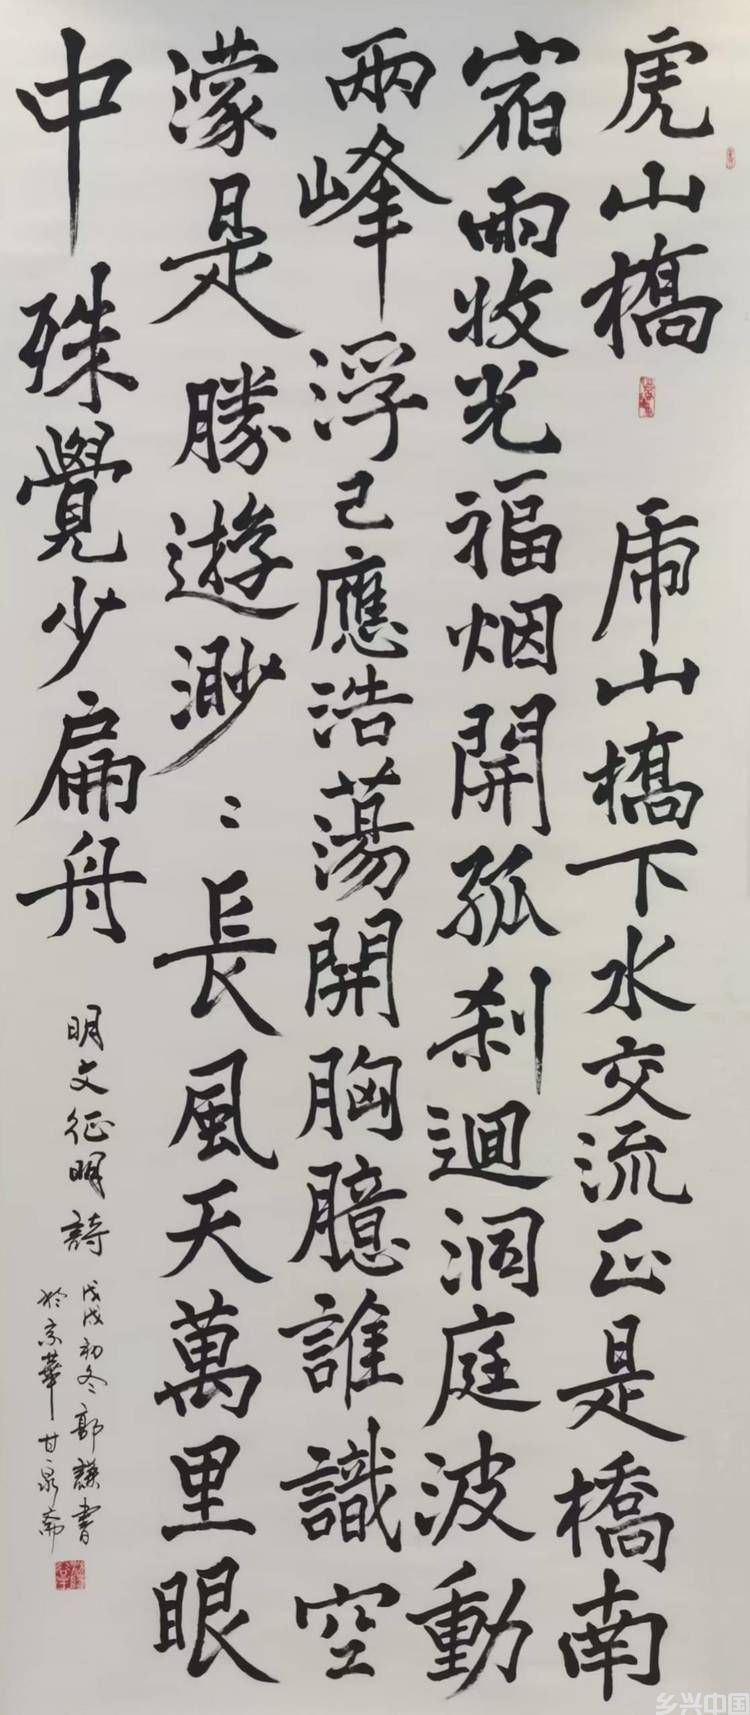 虎山橋 虎山橋下水交流正是橋南
宿雨收光福烟開孤刹迴洞庭波動
兩峰浮已應浩蕩開胸臆誰識空
濛是勝遊渺〻長風天萬里眼
中殊覺少扁舟
明文征明詩
戊戌初冬郭謙書
於京華甘泉斋
乡兴中国